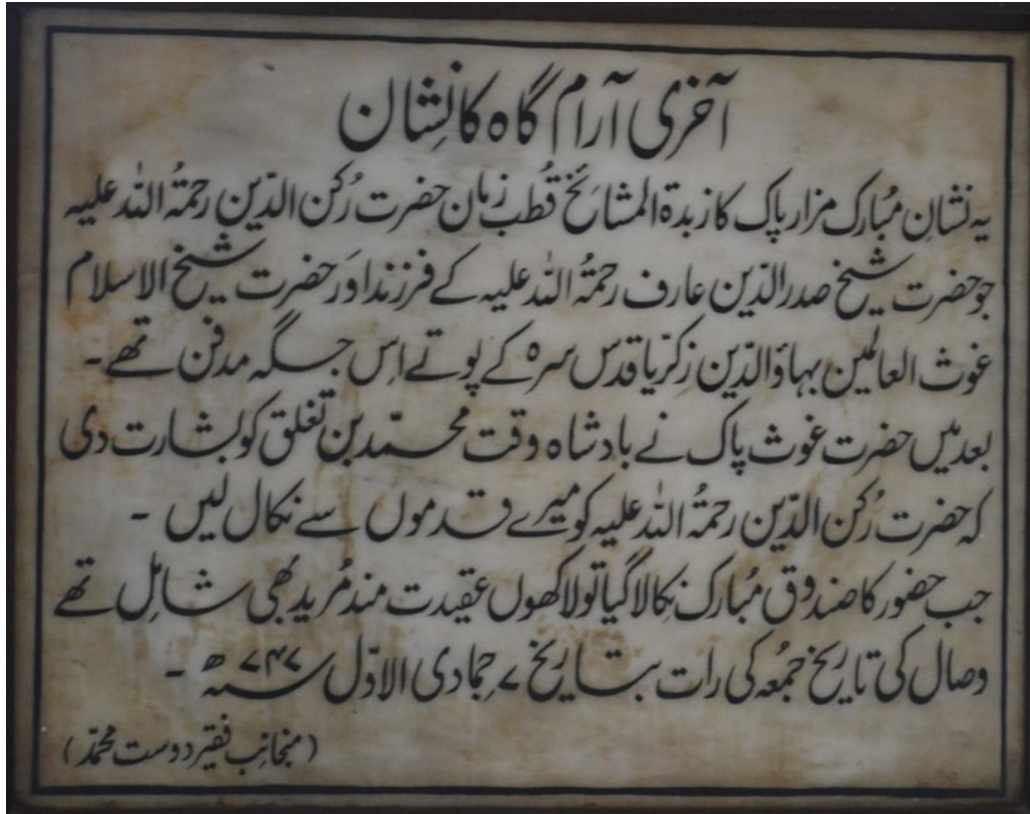 آخری آرام گاہ کا نِشان
یہ نشانِ مُبارک مزار پاک کا زبدۃ المشائخ قُطب زمان حضرت رُکن الدّین رحمتُہ اللہ علیہ
جو حضرت شیخ صدر الدّین عارف رحمتُہ اللہ علیہ کے فرزند اور حضرت شیخ الاسلام
غوث العالمین بہاؤ الدّین زکرّیا قدس سرہ کے پوتے اِس جگہ مدفن تھے۔
بعد میں حضرت غوث پاک نے بادشاہ وقت محمّد بن تغلق کو بشارت دی
کہ حضرت رُکن الدّین رحمتُہ اللہ علیہ کو میرے قدموں سے نکال لیں ۔
جب حضور کا صندوق مُبارک نِکالا گیا تو لاکھوں عقیدت مند مُرید بھی شامِل تھے
وصال کی تاریخ جمُعہ کی رات بتاریخ ۷ جمادی الاوّل سنہ ۷۴۷ ھ ۔
(منجانِب فقیر دوست محمّد)